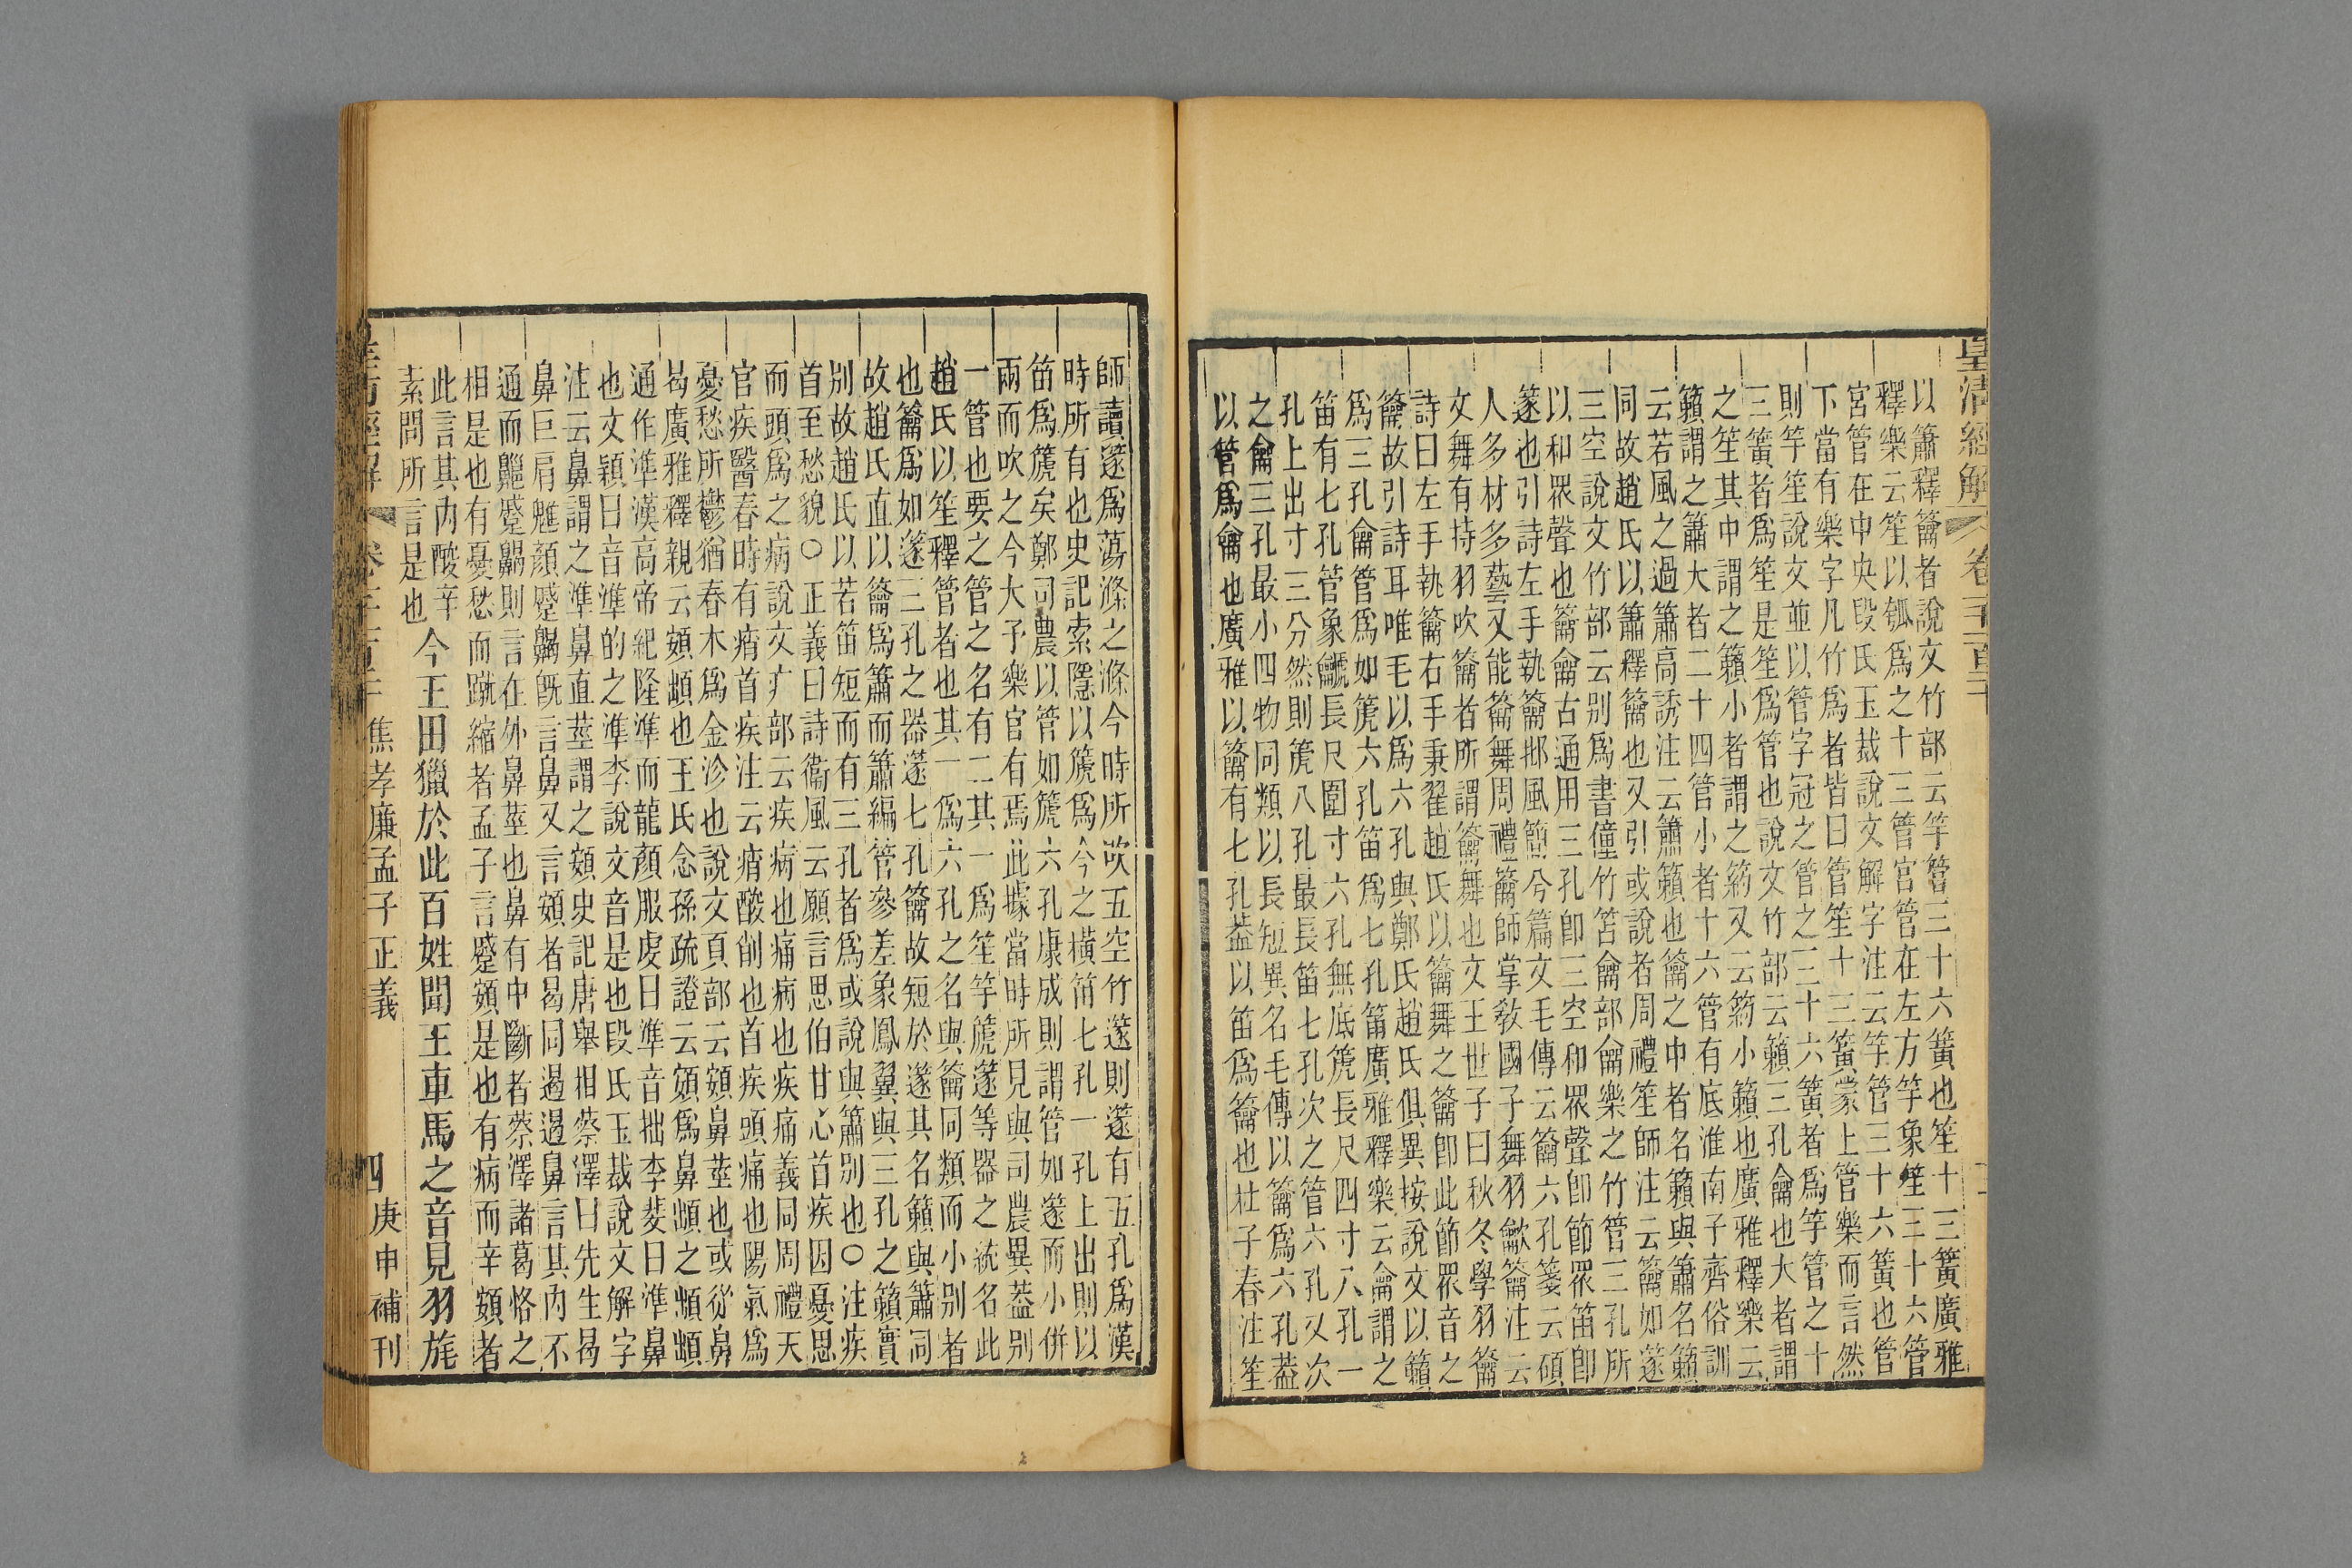 皇清經解 卷千一百
以簫釋籥者說文竹部云竽管三十六簧也笙十三簧廣雅
釋樂云笙以瓠爲之十三管宮管在左方竽象笙三十六管
宮管在中央段氏玉裁說文解字注云竽管三十六簧也管
下當有樂字凡竹爲者皆曰管笙十三簧蒙上管樂而言然
則竽笙說文並以管字冠之管之三十六簧者爲竽管之十
三簧者爲笙是笙爲管也說文竹部云籟三孔龠也大者謂
之笙其中謂之籟小者謂之箹又云箹小籟也廣雅釋樂云
籟謂之簫大者二十四管小者十六管有底淮南子齊俗訓
云若風之過簫高誘注云簫籟也籥之中者名籟與簫名籟
同故趙氏以簫釋籥也又引或說者周禮笙師注云籥如篴
三空說文竹部云別爲書僮竹笘龠部龠樂之竹管三孔所
以和眾聲也籥龠古通用三孔卽三空和眾聲卽節眾笛卽
篴也引詩左手執籥邶風簡兮篇文毛傳云籥六孔箋云碩
人多材多藝又能籥舞周禮籥師掌敎國子舞羽龡籥注云
文舞有持羽吹籥者所謂籥舞也文王世子曰秋冬學羽籥
詩曰左手執籥右手秉翟趙氏以籥舞之籥卽此節眾音之
籥故引詩耳唯毛以爲六孔與鄭氏趙氏俱異按說文以籟
爲三孔龠管爲如篪六孔笛爲七孔筩廣雅釋樂云龠謂之
笛有七孔管象䶵長尺圍寸六孔無底篪長尺四寸八孔一
孔上出寸三分然則篪八孔最長笛七孔次之管六孔又次
之龠三孔最小四物同類以長短異名毛傳以籥爲六孔葢
以管爲龠也廣雅以籥有七孔葢以笛爲籥也杜子春注笙
師讀篴爲蕩滌之滌今時所吹五空竹篴則篴有五孔爲漢
時所有也史記索隱以篪爲今之橫笛七孔一孔上出則以
笛爲篪矣鄭司農以管如篪六孔康成則謂管如篴而小併
兩而吹之今大予樂官有焉此據當時所見與司農異葢別
一管也要之管之名有二其一爲笙竽篪篴等器之統名此
趙氏以笙釋管者也其一爲六孔之名與籥同類而小別者
也籥爲如篴三孔之器篴七孔籥故短於篴其名籟與簫同
故趙氏直以籥爲簫而簫編管參差象鳳翼與三孔之籟實
別故趙氏以若笛短而有三孔者爲或說與簫別也○注疾
首至愁貌○正義曰詩衞風云願言思伯甘心首疾因憂思
而頭爲之病說文疒部云疾病也痛病也疾痛義同周禮天
官疾醫春時有痟首疾注云痟酸削也首疾頭痛也陽氣爲
憂愁所鬱猶春木爲金沴也說文頁部云頞鼻莖也或從鼻
曷廣雅釋親云頞䪼也王氏念孫疏證云頞爲鼻䪼之䪼䪼
通作準漢高帝紀隆準而龍顏服虔曰準音拙李斐曰準鼻
也文穎曰音準的之準李說文音是也段氏玉裁說文解字
注云鼻謂之準鼻直莖謂之頞史記唐舉相蔡澤曰先生曷
鼻巨肩魋顏蹙齃旣言鼻又言頞者曷同遏遏鼻言其內不
通而齆蹙齃則言在外鼻莖也鼻有中斷者蔡澤諸葛恪之
相是也有憂愁而蹴縮者孟子言蹙頞是也有病而辛頞者
此言其內酸辛
素問所言是也 今王田獵於此百姓聞王車馬之音見羽旄
焦孝廉孟子正義 四 庚申補刊